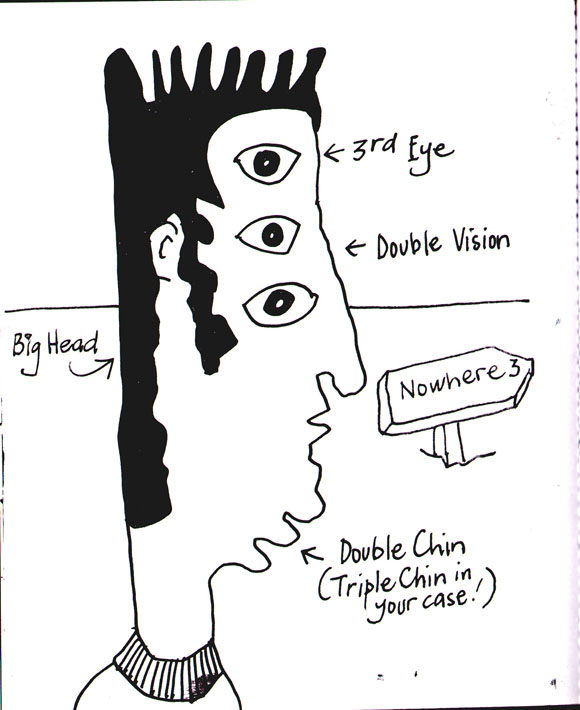 3rd Eye
Double Vision
Big Head
Nowhere 3
Double Chin
(Triple Chin in
your case!)